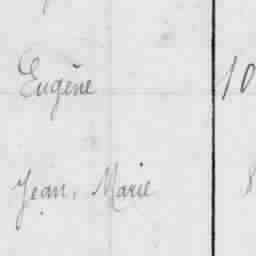 Eugène 10
Jean, Marie 8